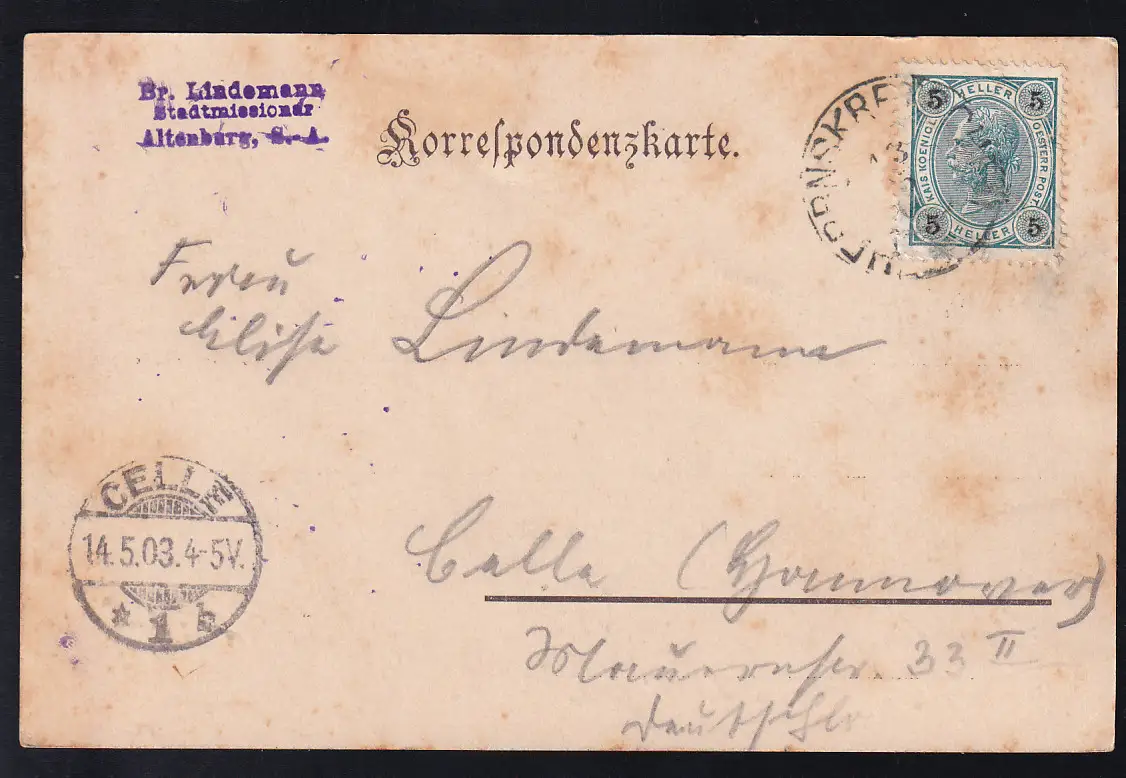 Br. Lindemann
Stadtmissionar
Altenburg, S.-A.
Korrespondenzkarte.
5 HELLER 5
KAIS KOENIGL
OESTERR POST
5 HELLER 5
Frau
Elise Lindemann
CELLE
14.5.03.4-5V.
* 1 b
Celle (Hannover)
Mauernstr. 33 II
Deutschl